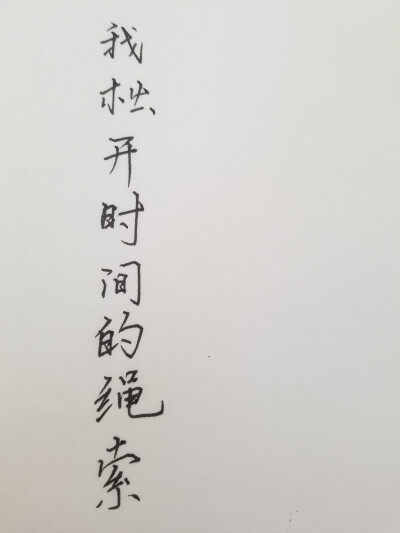 我松开时间的绳索